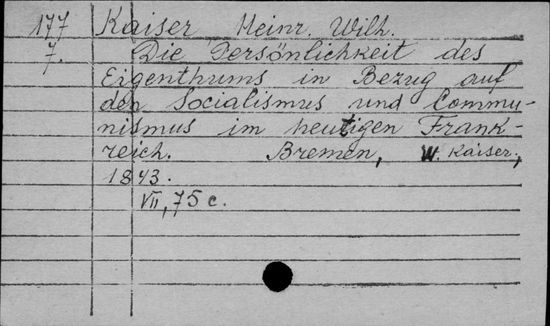 177 Kaiser Heinr. Wilh.
7. Die Persönlichkeit des
Eigenthums in Bezug auf
den Socialismus und Commu-
nismus im heutigen Frank-
reich. Bremen, W. Kaiser,
1843.
VII, 75 c.